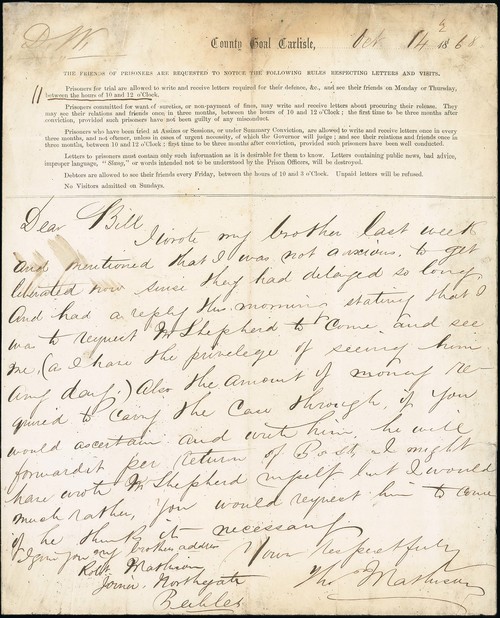 D. W.
County Goal Carlisle, Oct 14 1868
THE FRIENDS OF PRISONERS ARE REQUESTED TO NOTICE THE FOLLOWING RULES RESPECTING LETTERS AND VISITS.
Prisoners for trial are allowed to write and receive letters required for their defence, &c., and see their friends on Monday or Thursday,
between the hours of 10 and 12 o'Clock.
Prisoners committed for want of sureties, or non-payment of fines, may write and receive letters about procuring their release. They
may see their relations and friends once in three months, between the hours of 10 and 12 o'Clock; the first time to be three months after
conviction, provided such prisoners have not been guilty of misconduct.
Prisoners who have been tried at Assizes or Sessions, or under Summary Conviction, are allowed to write and receive letters once in every
three months, and not oftener, unless in cases of urgent necessity, of which the Governor will judge; and see their relations and friends once in
three months, between 10 and 12 o'Clock; first time to be three months after conviction, provided such prisoners have been well conducted.
Letters to prisoners must contain only such information as it is desirable for them to know. Letters containing public news, bad advice,
improper language, "Slang," or words intended not to be understood by the Prison Officers, will be destroyed.
Debtors are allowed to see their friends every Friday, between the hours of 10 and 3 o'Clock. Unpaid letters will be refused.
No Visitors admitted on Sundays.
Dear Bill
I wrote my brother last week
and mentioned that I was not anxious, to get
liberated now sense they had delayed so long
And had a reply this morning stating that I
was to request Mr Shepherd to come and see
me, (as I have the privelege of seeing him
any day,) Also the amount of money re-
quired to carry the case through, if you
would ascertain and write him he will
forward it per return of Post, I might
have wrote Mr Shepherd myself but I would
much rather, you would request him to come
if he think it necessary
I give you my brother address
Your Respectfully
Robt. Mathison
Joiner Northgate
Thos Mathison
Peebles